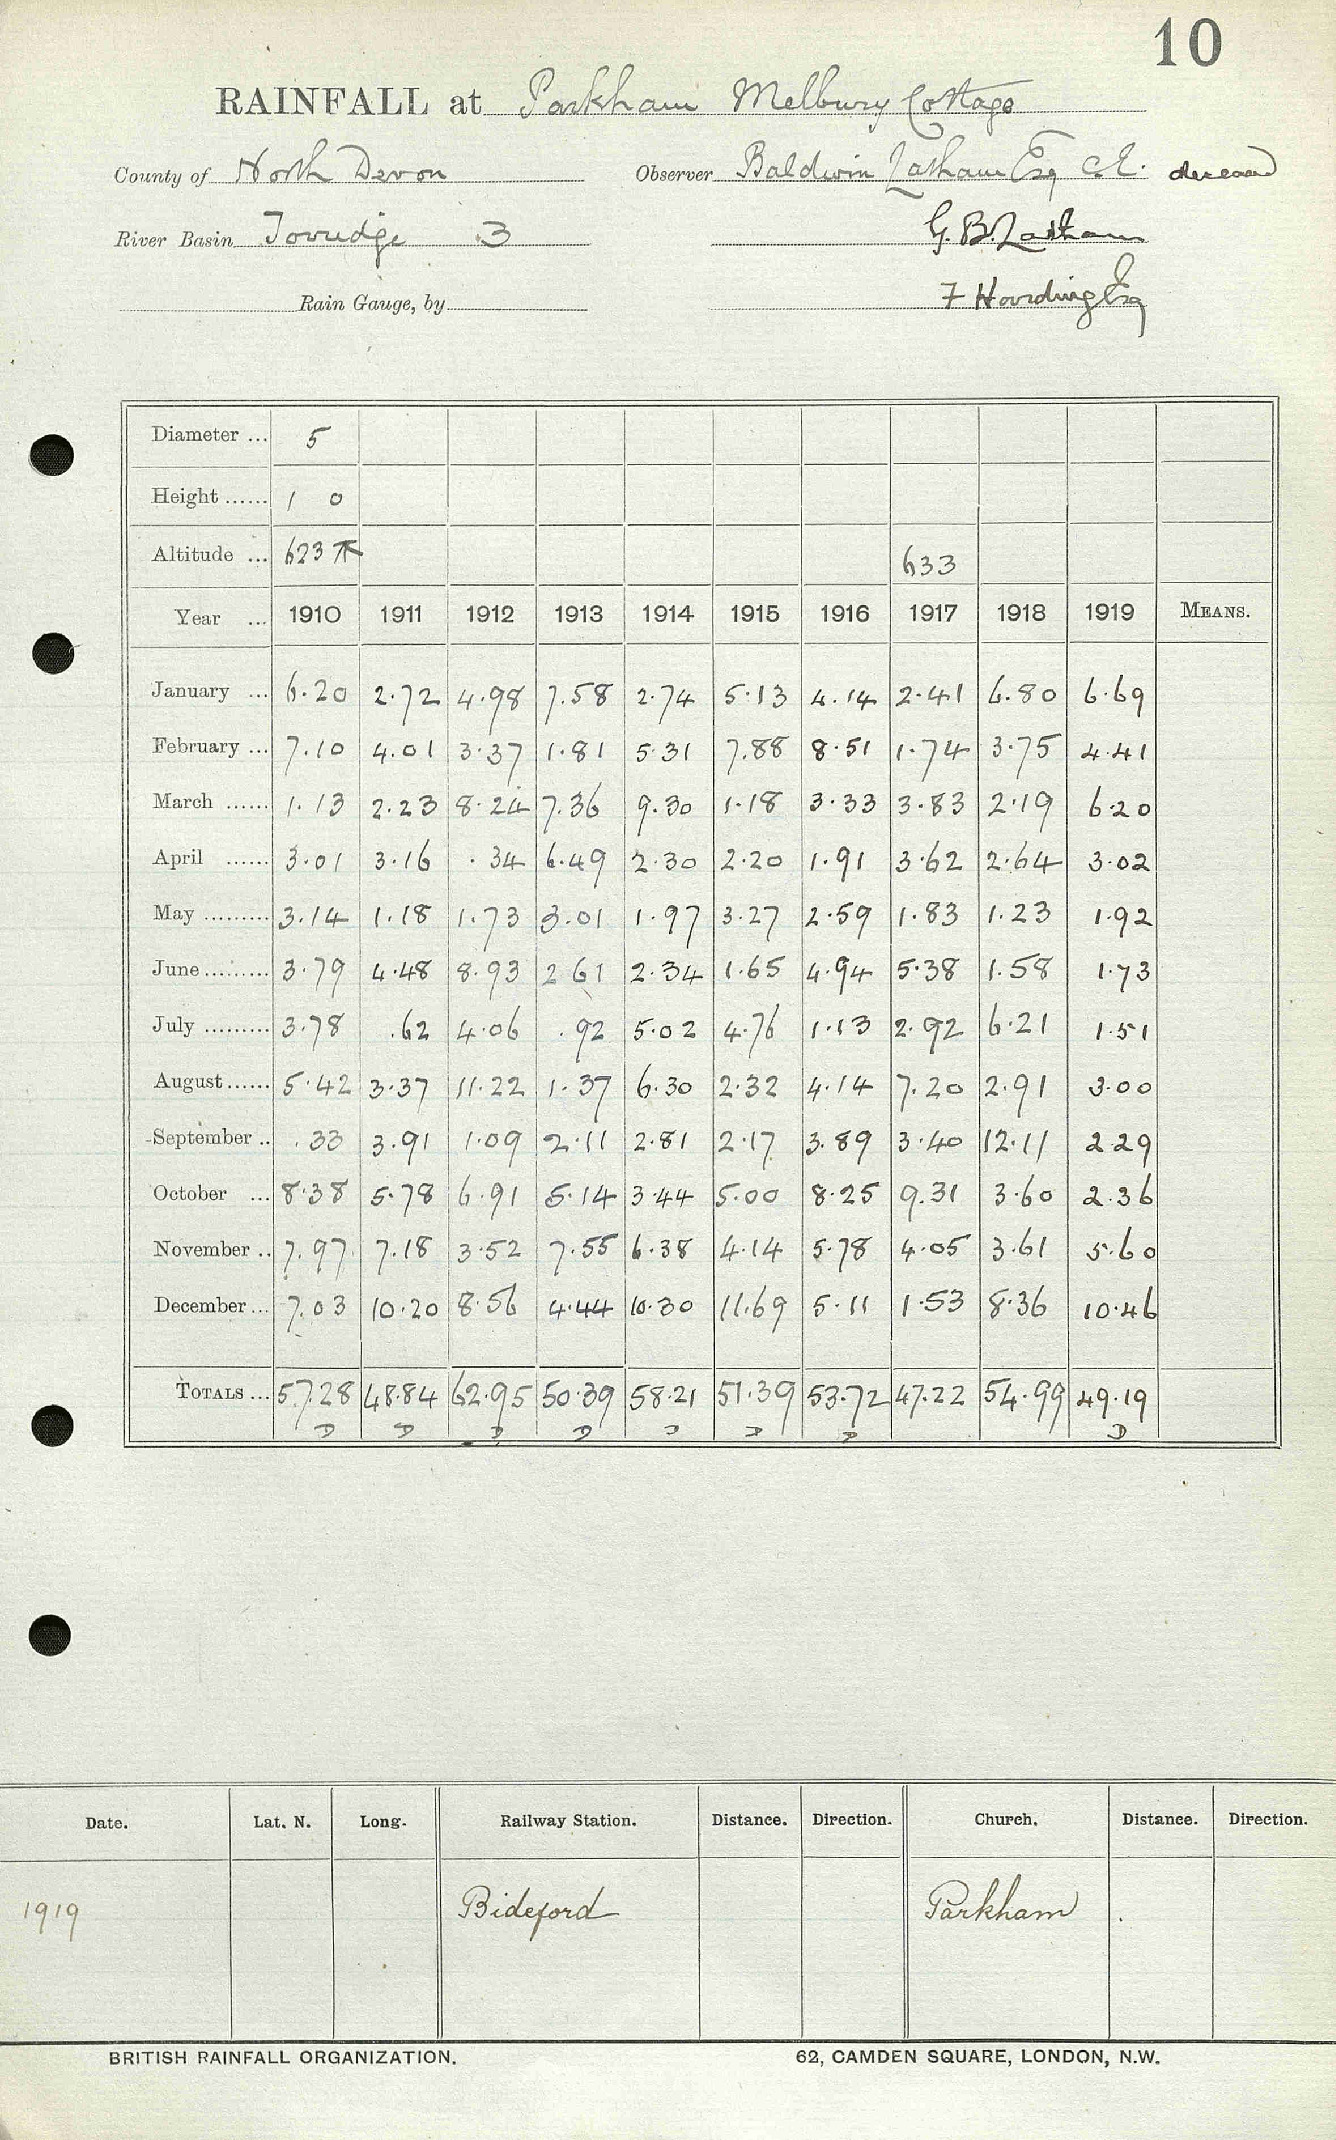 10
RAINFALL at Parkham Melbury Cottage
County of North Devon Observer Baldwin Latham Esq C.E. deceased
River Basin Torridge 3 G. B. Latham
Rain Gauge, by F Harding Esq
Diameter ... 5
Height ...... 1 0
Altitude ... 623 633
Year ... 1910 1911 1912 1913 1914 1915 1916 1917 1918 1919 MEANS.
January ... 6.20 2.72 4.98 7.58 2.74 5.13 4.14 2.41 6.80 6.69
February ... 7.10 4.01 3.37 1.81 5.31 7.88 8.51 1.74 3.75 4.41
March ...... 1.13 2.23 8.24 7.36 9.30 1.18 3.33 3.83 2.19 6.20
April ...... 3.01 3.16 .34 6.49 2.30 2.20 1.91 3.62 2.64 3.02
May ......... 3.14 1.18 1.73 3.01 1.97 3.27 2.59 1.83 1.23 1.92
June ......... 3.79 4.48 8.93 2 61 2.34 1.65 4.94 5.38 1.58 1.73
July ......... 3.78 .62 4.06 .92 5.02 4.76 1.13 2.92 6.21 1.51
August ...... 5.42 3.37 11.22 1.37 6.30 2.32 4.14 7.20 2.91 3.00
September .. .33 3.91 1.09 2.11 2.81 2.17 3.89 3.40 12.11 2 29
October ... 8.38 5.78 6.91 5.14 3.44 5.00 8.25 9.31 3.60 2.36
November .. 7.97 7.18 3.52 7.55 6.38 4.14 5.78 4.05 3.61 5.60
December ... 7.03 10.20 8.56 4.44 10.30 11.69 5.11 1.53 8.36 10.46
TOTALS ... 57.28 48.84 62.95 50.39 58.21 51.39 53.72 47.22 54.99 49.19
D D D D D D D D
Date. Lat. N. Long. Railway Station. Distance. Direction. Church. Distance. Direction.
1919 Bideford Parkham
BRITISH RAINFALL ORGANIZATION. 62, CAMDEN SQUARE, LONDON, N.W.